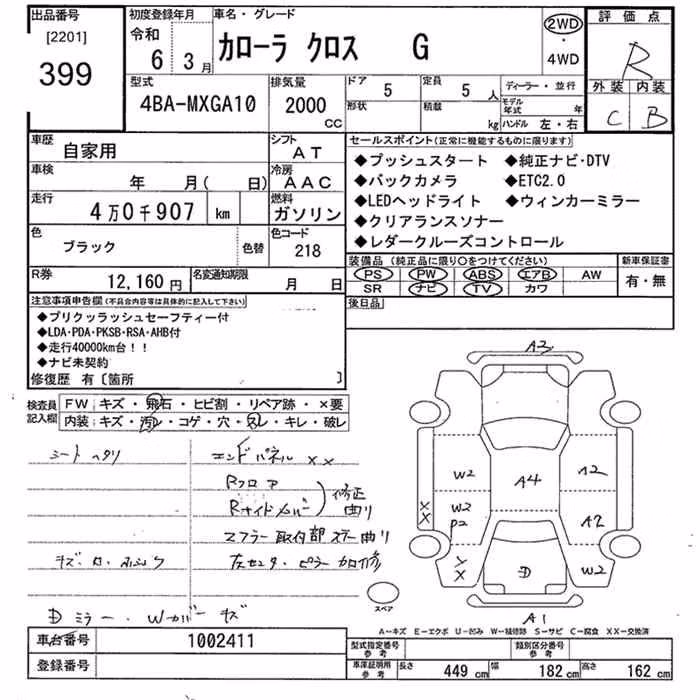 出品番号
[2201]
399
初度登録年月
令和
6 3月
車名・グレード
カローラ クロス G
2WD
・
4WD
評価点
R
外装 内装
C B
型式
4BA-MXGA10
排気量
2000
CC
ドア
5
定員
5 人
形状
積載
kg
ディーラー・並行
モデル年式 年
ハンドル 左・右
車歴
自家用
シフト
AT
車検
年 月( 日)
冷房
AAC
走行
4万0千907 km
燃料
ガソリン
色
ブラック
色替
色コード
218
R券
12,160円
名変通知期限
月 日
セールスポイント(正常に機能するものに限ります)
◆プッシュスタート ◆純正ナビ・DTV
◆バックカメラ ◆ETC2.0
◆LEDヘッドライト ◆ウィンカーミラー
◆クリアランスソナー
◆レダークルーズコントロール
装備品 (純正品に限り○をつけてください)
PS PW ABS エアB AW
SR ナビ TV カワ
新車保証書
有・無
後日品
注意事項申告欄(不具合内容等は具体的に記入して下さい)
◆プリクッラッシュセーフティー付
◆LDA・PDA・PKSB・RSA・AHB付
◆走行40000km台!!
◆ナビ未契約
修復歴 有〔箇所 〕
検査員
記入欄
FW キズ・飛石・ヒビ割・リペア跡・×要
内装 キズ・汚レ・コゲ・穴・スレ・キレ・破レ
シートヘタリ
エンドパネル ××
Rフロア
Rサイドメンバー
修正
曲り
マフラー取付部ステー曲り
左センターピラー加修
Dミラー・Wカバーキズ
A3
W2
A2
A4
XX
W2
P2
A2
XX
D
W2
A1
スペア
A―キズ E―エクボ U―凹み W―補修跡 S―サビ C―腐食 XX―交換済
車台番号
1002411
登録番号
型式指定番号
参考
類別区分番号
参考
車庫証明用
参考
長さ 449 cm 幅 182 cm 高さ 162 cm